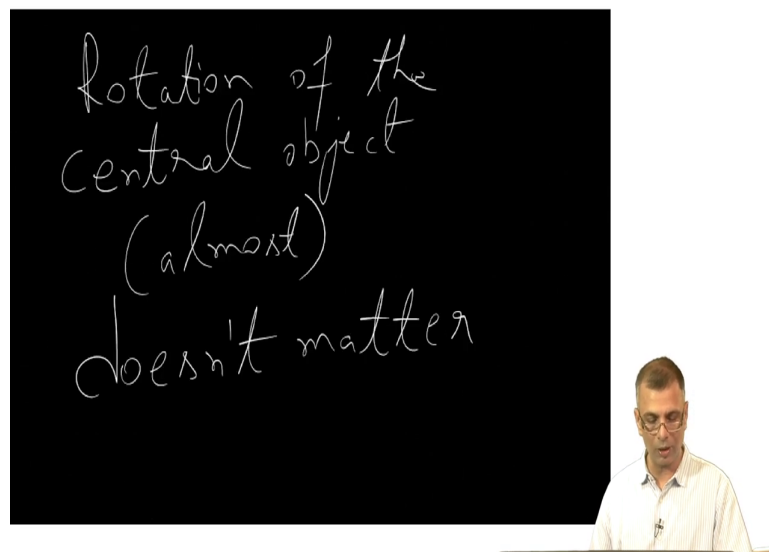 Rotation of the
central object
(almost)
doesn't matter